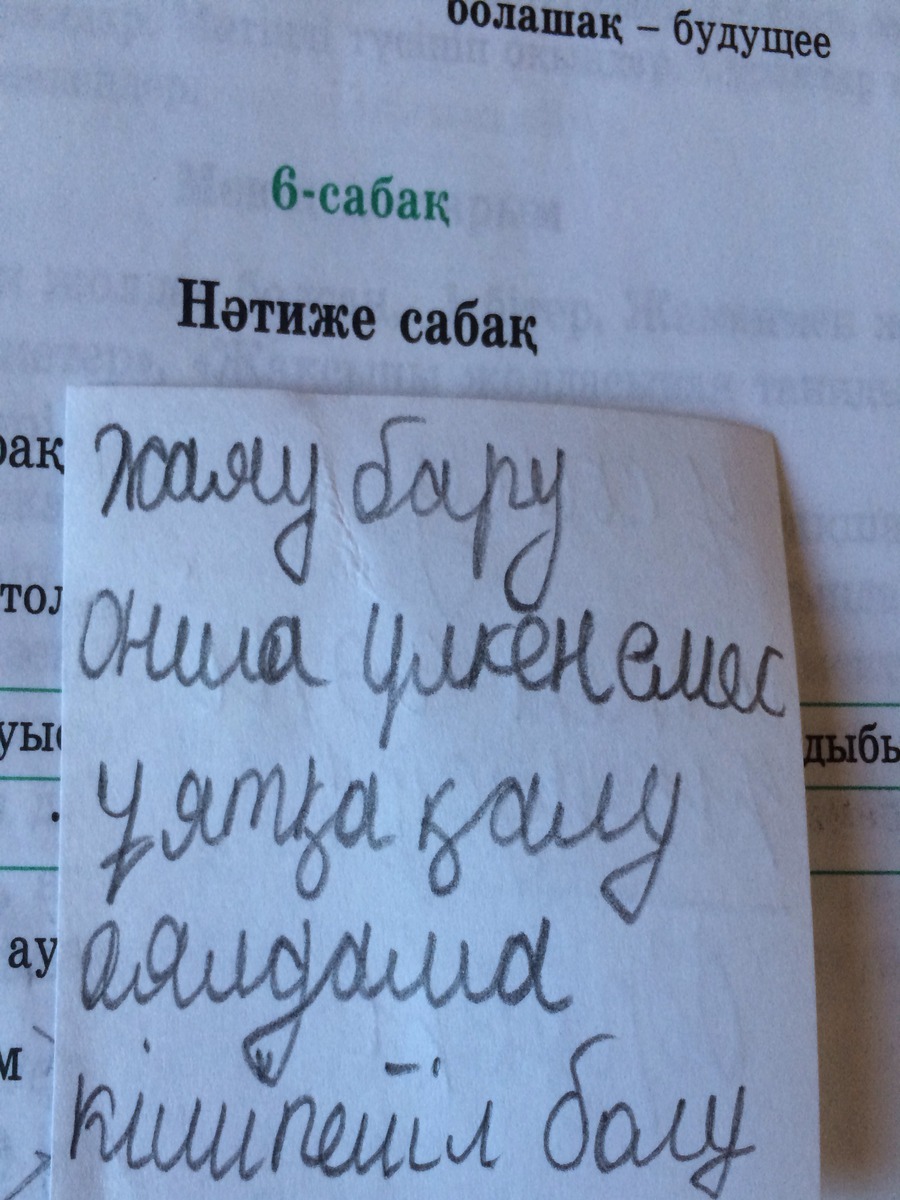 болашақ – будущее
6-сабақ
Нәтиже сабақ
жаяу бару
онша үлкен емес
ұятқа қалу
аялдама
кішіпейіл болу